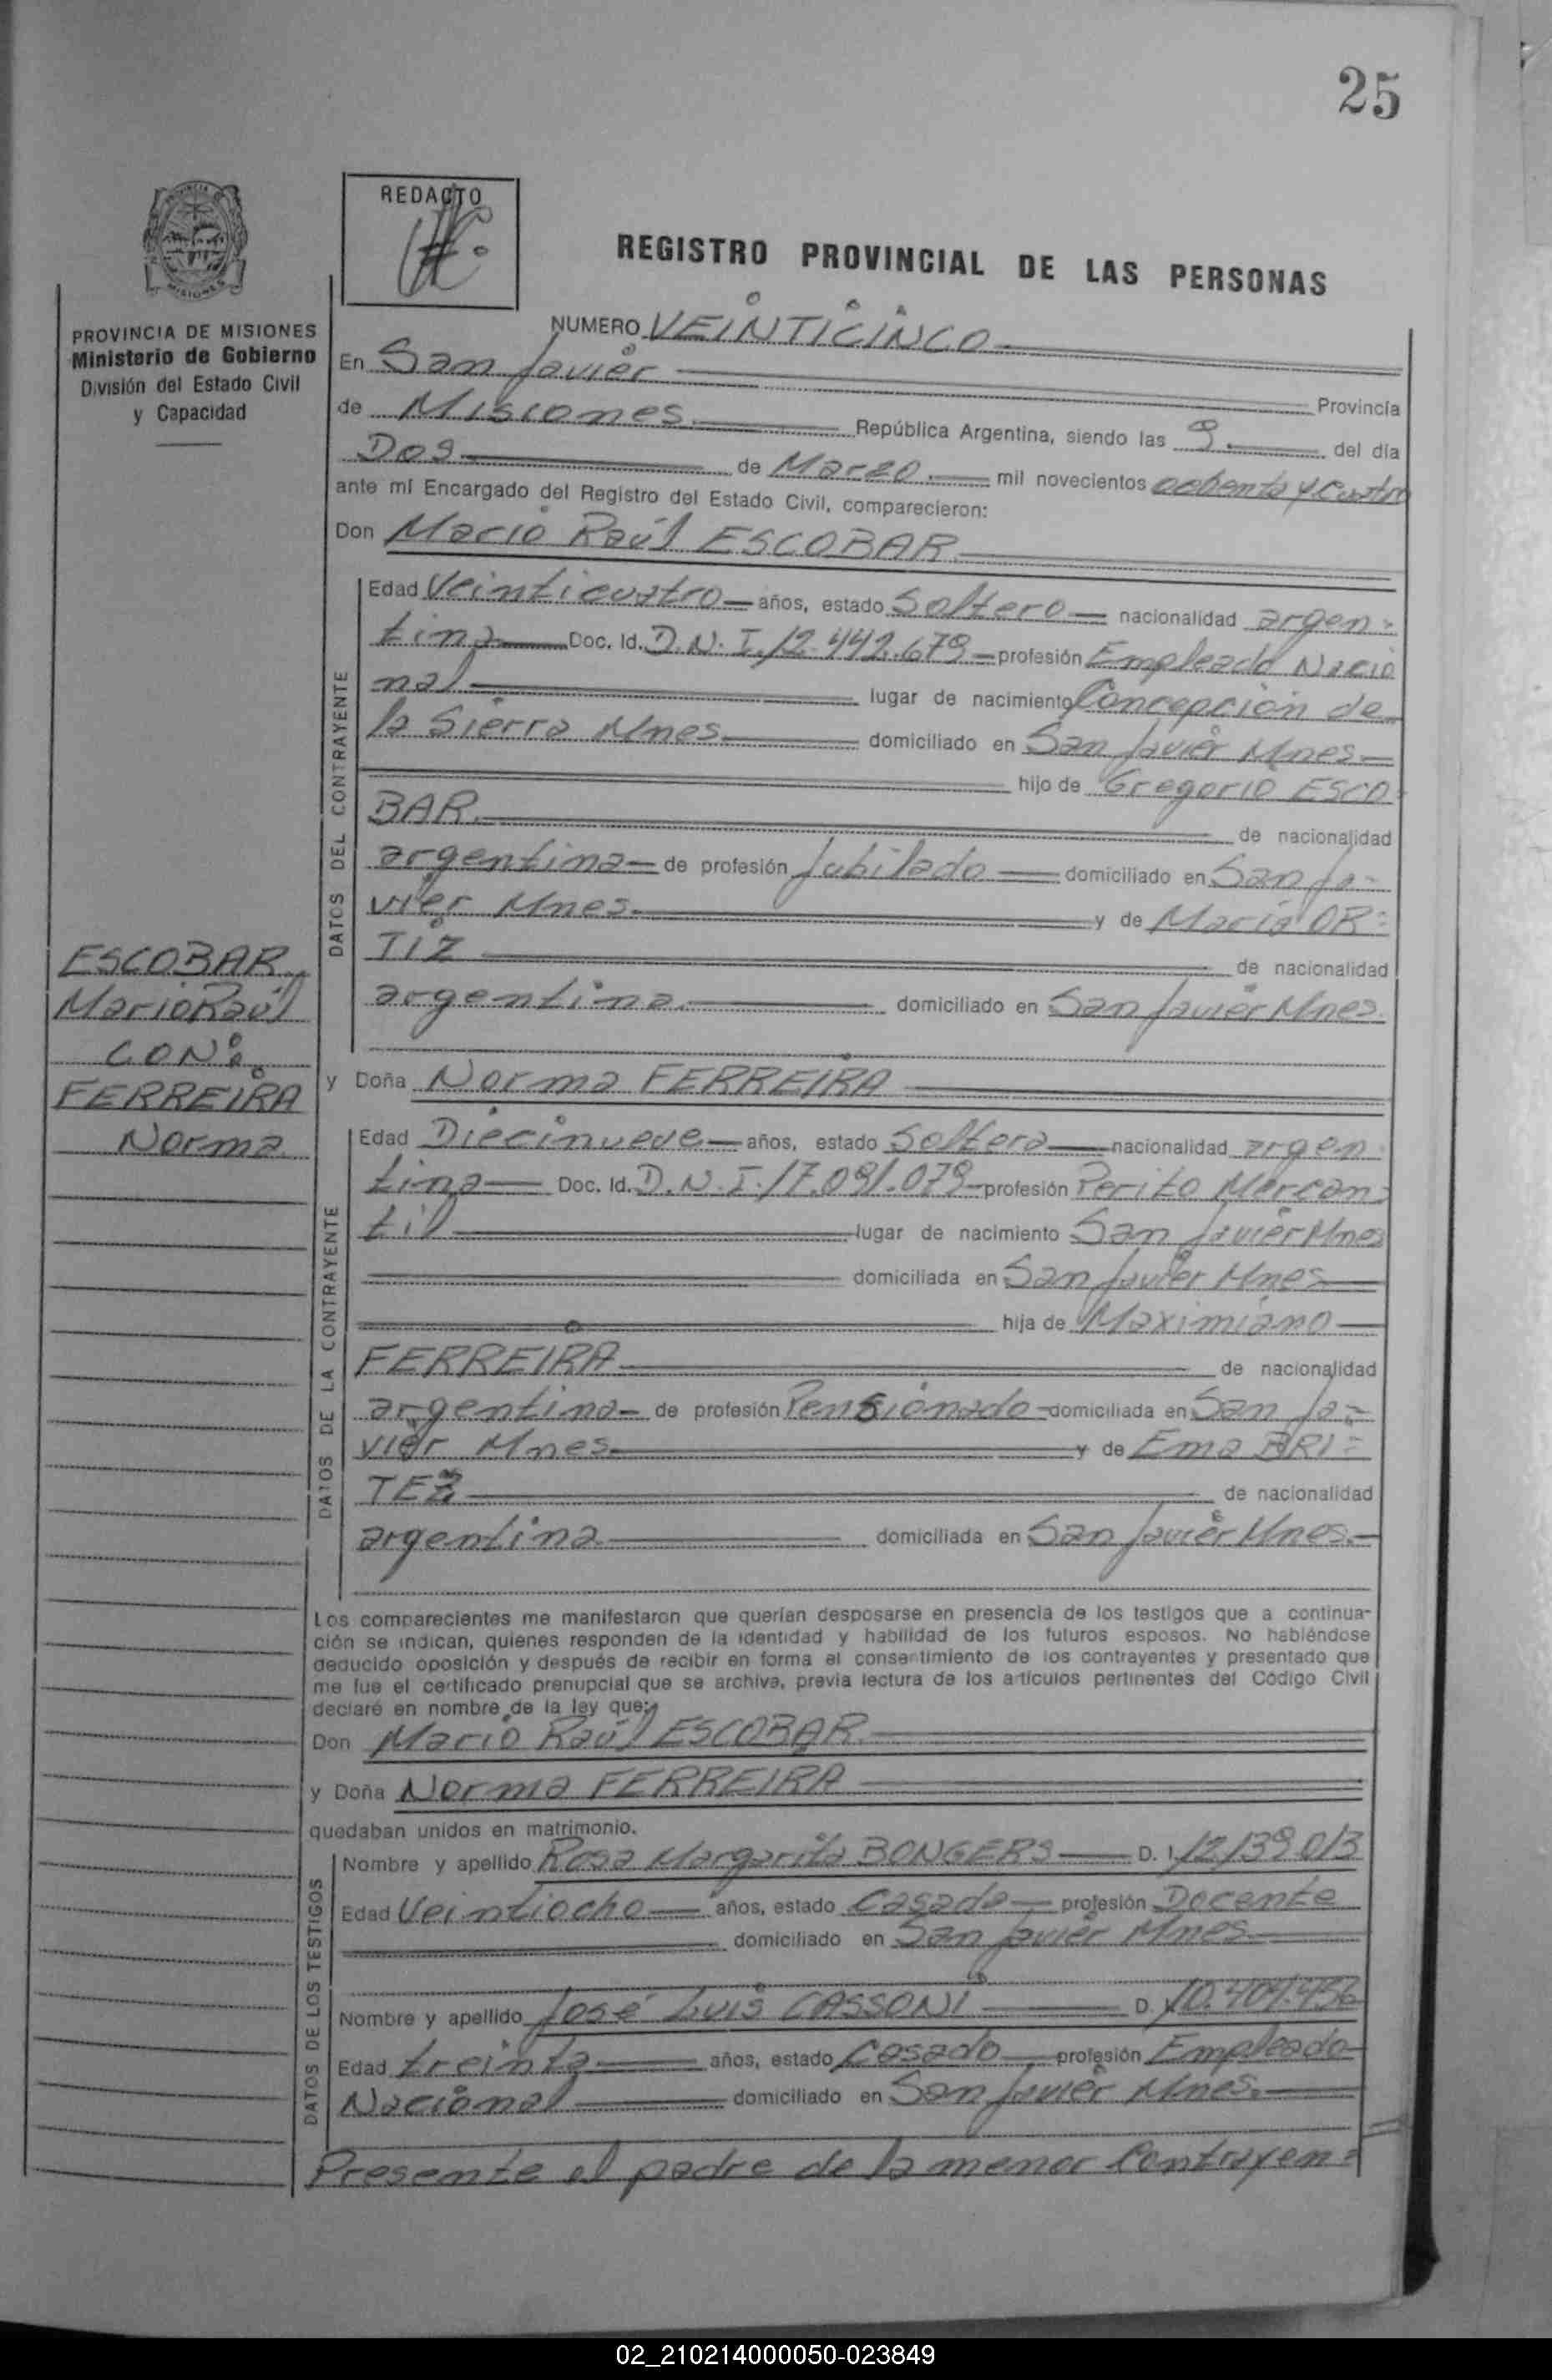 25
REDACTO
REGISTRO PROVINCIAL DE LAS PERSONAS
MISIONES
PROVINCIA DE MISIONES
Ministerio de Gobierno
División del Estado Civil
y Capacidad
NUMERO VEINTICINCO
En San Javier Provincia
de Misiones República Argentina, siendo las 9 del día
Dos de Marzo mil novecientos ochenta y cuatro
ante mí Encargado del Registro del Estado Civil, comparecieron:
Don Mario Raúl ESCOBAR
DATOS DEL CONTRAYENTE
Edad Veinticuatro años, estado Soltero nacionalidad argen-
tina Doc. Id. D.N.I. 12.442.679 profesión Empleado Nacio
nal lugar de nacimiento Concepción de
la Sierra Mnes domiciliado en San Javier Mnes
hijo de Gregorio ESCO-
BAR de nacionalidad
argentina de profesión Jubilado domiciliado en San Ja-
vier Mnes. y de María OR=
TIZ de nacionalidad
argentina domiciliado en San Javier Mnes.
ESCOBAR
Mario Raúl
CON:
FERREIRA
Norma
y Doña Norma FERREIRA
DATOS DE LA CONTRAYENTE
Edad Diecinueve años, estado Soltera nacionalidad argen-
tina Doc. Id. D.N.I. 17.091.079 profesión Perito Mercan-
til lugar de nacimiento San Javier Mnes
domiciliada en San Javier Mnes
hija de Maximiano
FERREIRA de nacionalidad
argentina de profesión Pensionado domiciliada en San Ja-
vier Mnes y de Ema BRI=
TEZ de nacionalidad
argentina domiciliada en San Javier Mnes.
Los comparecientes me manifestaron que querían desposarse en presencia de los testigos que a continua-
ción se indican, quienes responden de la identidad y habilidad de los futuros esposos. No habiéndose
deducido oposición y después de recibir en forma el consentimiento de los contrayentes y presentado que
me fue el certificado prenupcial que se archiva, previa lectura de los artículos pertinentes del Código Civil
declaré en nombre de la ley que:
Don Mario Raúl ESCOBAR
y Doña Norma FERREIRA
quedaban unidos en matrimonio.
DATOS DE LOS TESTIGOS
Nombre y apellido Rosa Margarita BONGERS D. I. 12139013
Edad Veintiocho años, estado Casada profesión Docente
domiciliado en San Javier Mnes
Nombre y apellido José Luis CASSONI D. 10.409.456
Edad treinta años, estado Casado profesión Empleado
Nacional domiciliado en San Javier Mnes.
Presente el padre de la menor Contrayen=
02_210214000050-023849